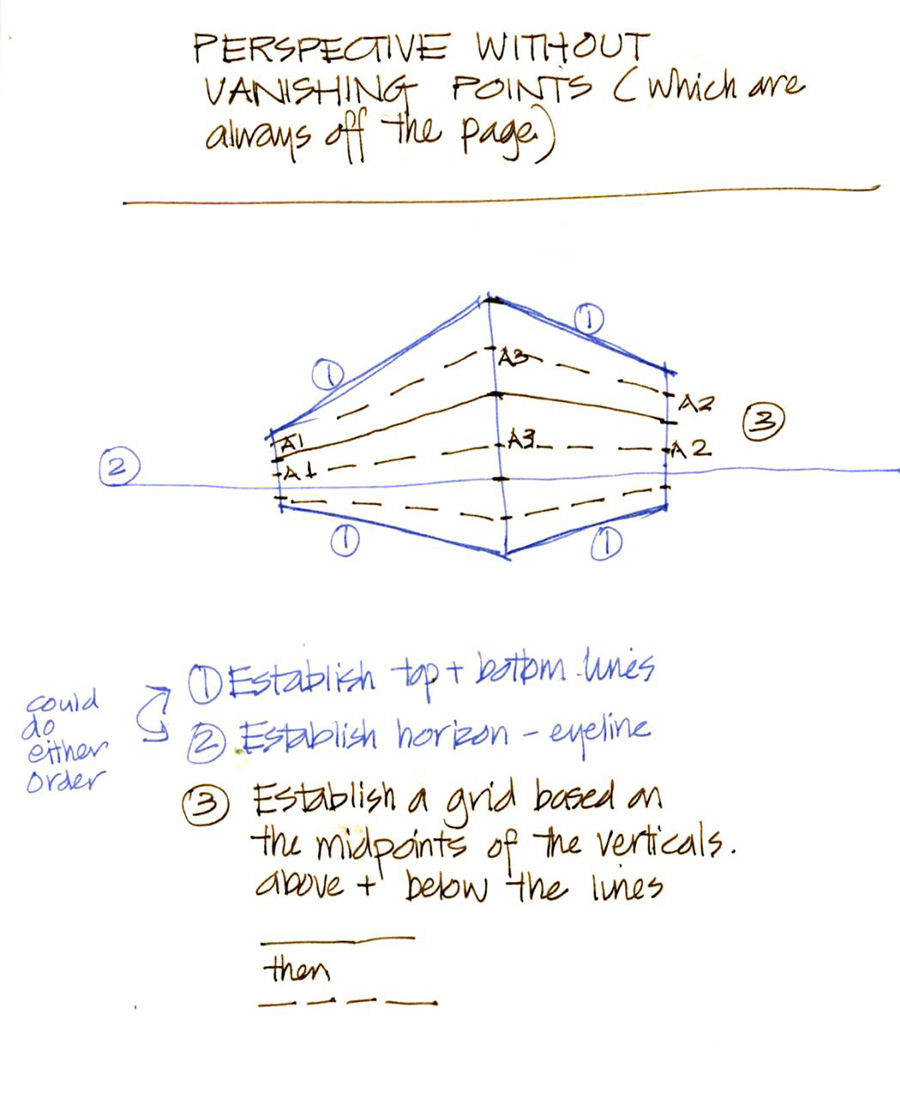 PERSPECTIVE WITHOUT
VANISHING POINTS (which are
always off the page)
①
①
A3
A2
③
A1
A3
A2
②
A1
①
①
could
do
either
order
① Establish top + bottom lines
② Establish horizon - eyeline
③ Establish a grid based on
the midpoints of the verticals.
above + below the lines
then